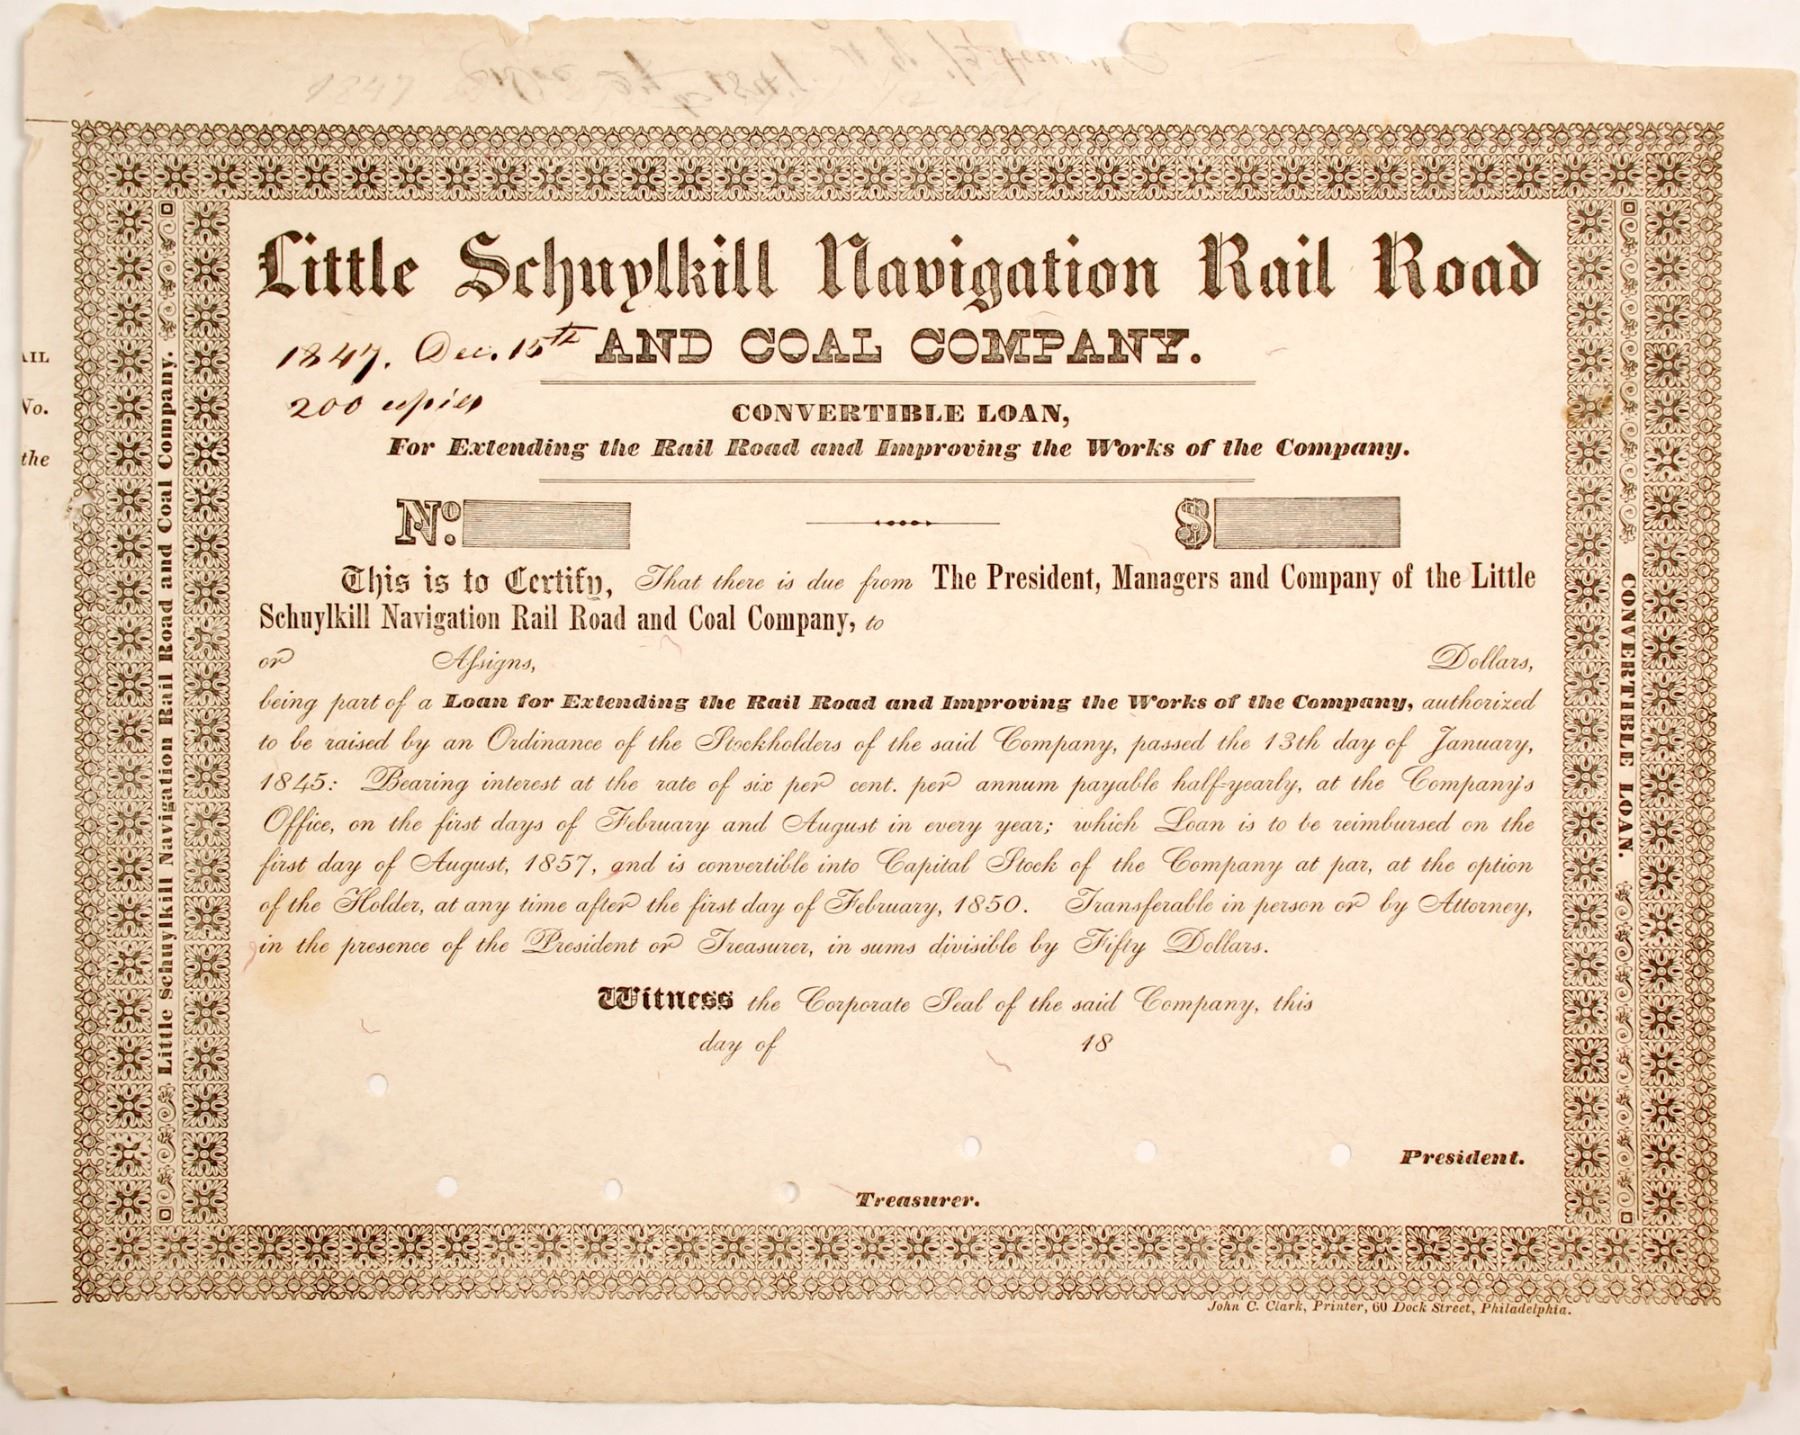 1847
Little Schuylkill Navigation Rail Road
1847. Dec. 15th AND COAL COMPANY.
200 copies
CONVERTIBLE LOAN,
For Extending the Rail Road and Improving the Works of the Company.
No. $
This is to Certify, That there is due from The President, Managers and Company of the Little
Schuylkill Navigation Rail Road and Coal Company, to
or Assigns, Dollars,
being part of a Loan for Extending the Rail Road and Improving the Works of the Company, authorized
to be raised by an Ordinance of the Stockholders of the said Company, passed the 13th day of January,
1845: Bearing interest at the rate of six per cent. per annum payable half-yearly, at the Company's
Office, on the first days of February and August in every year; which Loan is to be reimbursed on the
first day of August, 1857, and is convertible into Capital Stock of the Company at par, at the option
of the Holder, at any time after the first day of February, 1850. Transferable in person or by Attorney,
in the presence of the President or Treasurer, in sums divisible by Fifty Dollars.
Witness the Corporate Seal of the said Company, this
day of 18
President.
Treasurer.
John C. Clark, Printer, 60 Dock Street, Philadelphia.
Little Schuylkill Navigation Rail Road and Coal Company.
CONVERTIBLE LOAN.
AIL
No.
the